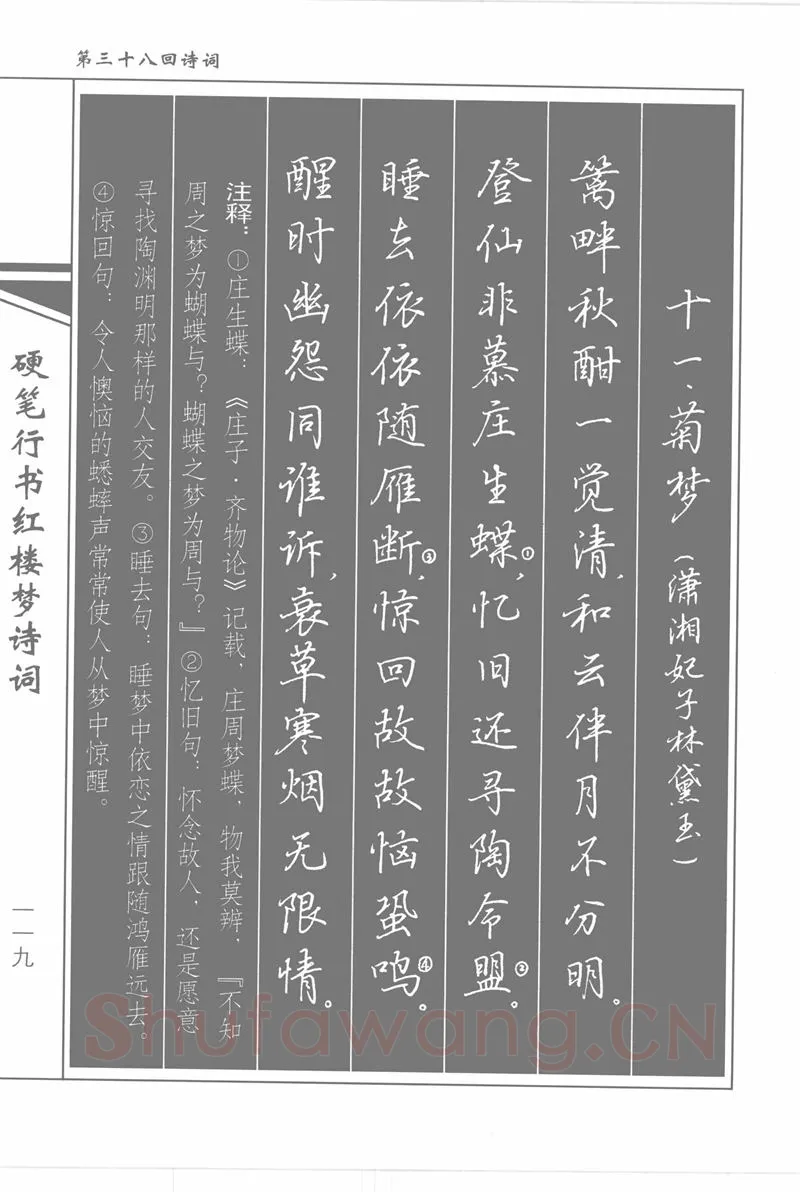 第三十八回诗词
十一、菊梦（潇湘妃子林黛玉）
篱畔秋酣一觉清，和云伴月不分明。
登仙非慕庄生蝶①，忆旧还寻陶令盟②。
睡去依依随雁断③，惊回故故恼蛩鸣④。
醒时幽怨同谁诉，衰草寒烟无限情。
注释：①庄生蝶：《庄子·齐物论》记载，庄周梦蝶，物我莫辨，『不知
周之梦为蝴蝶与？蝴蝶之梦为周与？』②忆旧句：怀念故人，还是愿意
寻找陶渊明那样的人交友。③睡去句：睡梦中依恋之情跟随鸿雁远去。
④惊回句：令人懊恼的蟋蟀声常常使人从梦中惊醒。
硬笔行书红楼梦诗词
一一九
Shufawang.CN